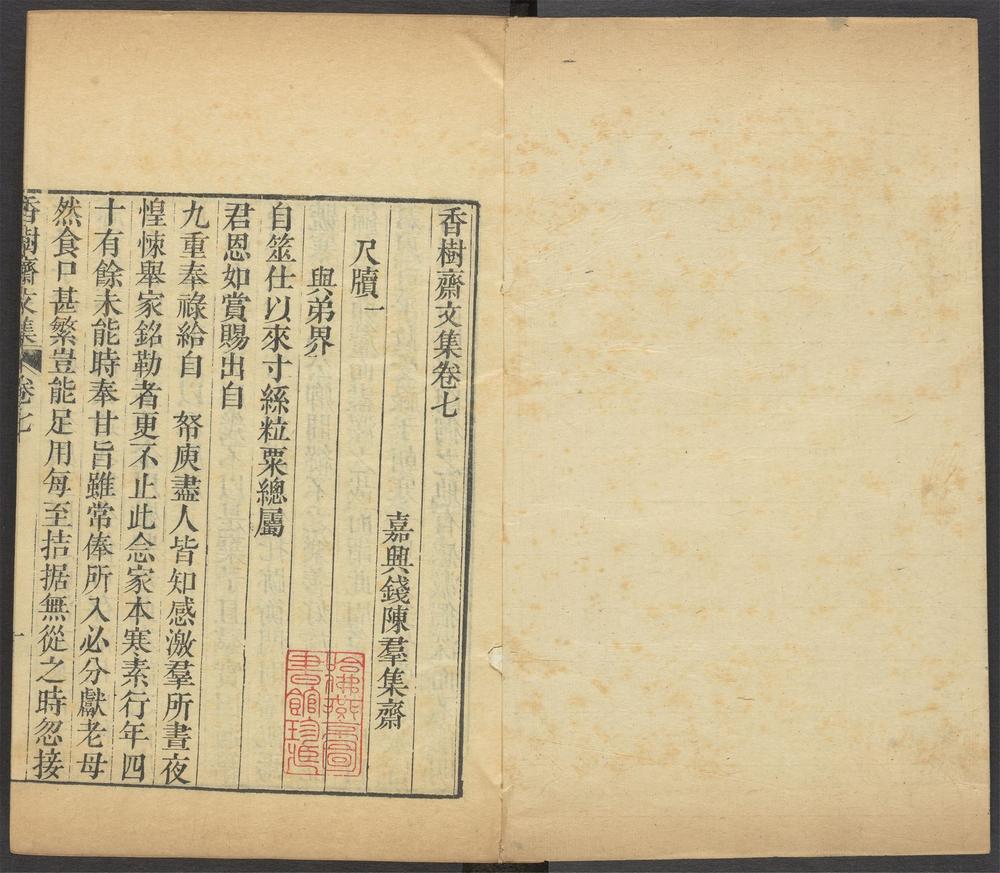 香樹齋文集卷七
嘉興錢陳羣集齋
尺牘一
與弟界
自筮仕以來寸絲粒粟總屬
君恩如賞賜出自
九重奉祿給自　帑庾盡人皆知感激羣所晝夜
惶悚舉家銘勒者更不止此念家本寒素行年四
十有餘未能時奉甘旨雖常俸所入必分獻老母
然食口甚繁豈能足用每至拮据無從之時忽接
香樹齋文集 卷七 一
哈佛燕京圖書館珍藏